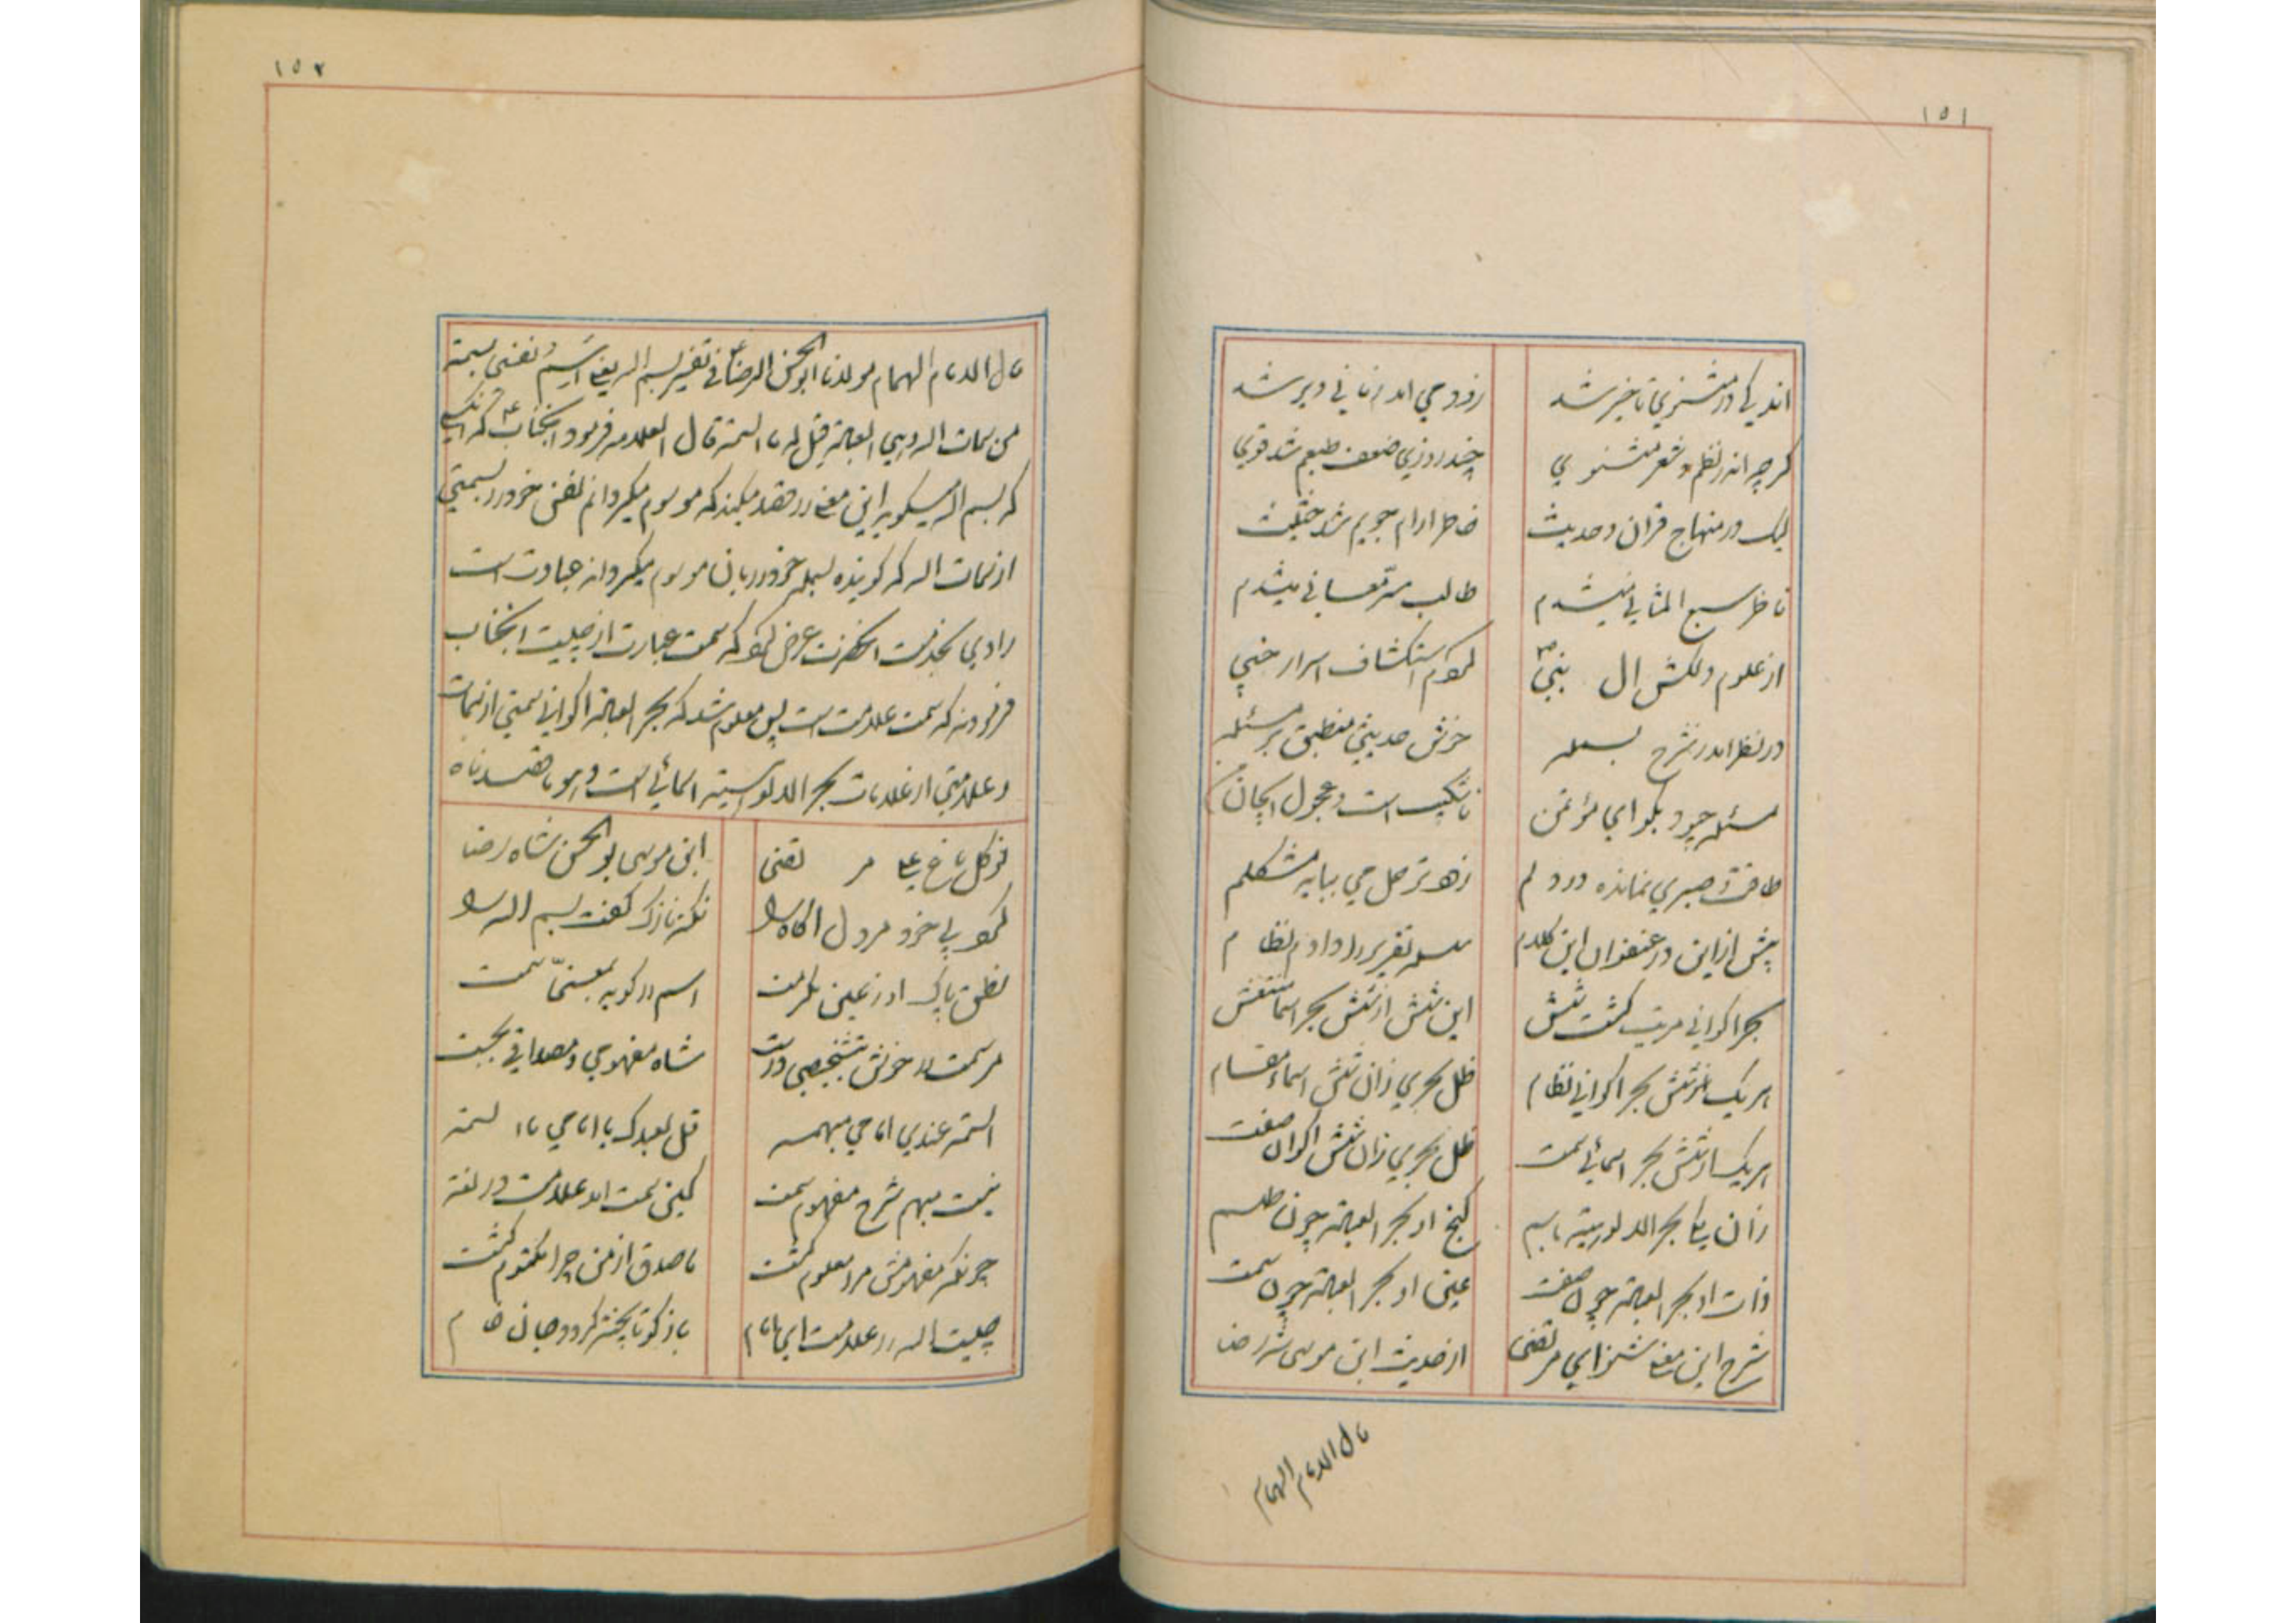 ۱۵۱
اندکی در مثنوی تاخیر شد
زود می اندر زمانی دیر شد
گرچه اندر نظم و شعر مثنوی
چند روزی ضعف طبعم شد قوی
لیک در منهاج قران و حدیث
خاطر ارام جویم شد حثیث
ناظر سبع المثانی میشدم
طالب سر معانی میشدم
از علوم دلکش ال نبی
کردم استکشاف اسرار خفی
در نظر امد ز شرح بسمله
خوش حدیثی منطبق بر مسئله
مسئله چبود بگو ای مؤتمن
طاقت و صبری نمانده در دلم
زودتر حل می بباید مشکلم
پیش ازاین در عنفوان این کلام
مسئله تقریر را دادم نظام
بحر اکوانی مرتب گشت شش
این شش از شش بحر اسما منتقش
هر یک از شش بحر اکوانی نظام
ظل بحری زان شش اسماء مقام
هر یک از شش بحر اسمائی سمت
ظل بحری زان شش اکوان صفت
زان یکی بحر الالوهیه باسم
گنج او بحر العماء چون طلسم
ذات او بحر العماء چون صفت
عین او بحر العماء چون سمت
شرح این معنی شنو ای مرتضی
از حدیث ابن موسی شه رضا
قال الامام الهمام
۱۵۲
قال الامام الهمام مولانا ابو الحسن الرضا فی تفسیر بسم الله یعنی اسم نفسی بسمة
من سمات الله وهی العبادة قیل له ما السمة قال العلامه فرمود انجناب که انکسی
که بسم الله میگوید این معنی را قصد میکند که موسوم میکردانم نفس خود را بسمتی
از سمات الله که گوینده بسمله خود را بان موسوم میکرداند عبادت است
راوی بخدمت انحضرت عرض نمود که سمت عبارت از چیست انجناب
فرمودند که سمت علامت است پس معلوم شد که بحر العماء اکوانی سمتی از سمات
و علامتی از علامات بحر الالوهیته اسمائی است و هو ما قصدناه
ابن موسی بو الحسن شاه رضا
نمود پی خرد مر دل اکاه را
نکته نازک گفت بسم الله را
نطق پاک او ز عین مکرمت
اسم را گوید بمعنی سمت
مر سمت را خوش بتشخیصی درست
شاه مفهومی و مصداقی بجست
السمة عندی امامی مبهمه
قل لعبدک یا امامی ما السمه
نیست مبهم شرح مفهوم سمت
کین سمت امد علامت در لغت
چونکه مفهومش مرا معلوم گشت
ما صدق از من چرا مکتوم گشت
چیست الله را علامت ای امام
باز گو تا پخته گردد جان خام